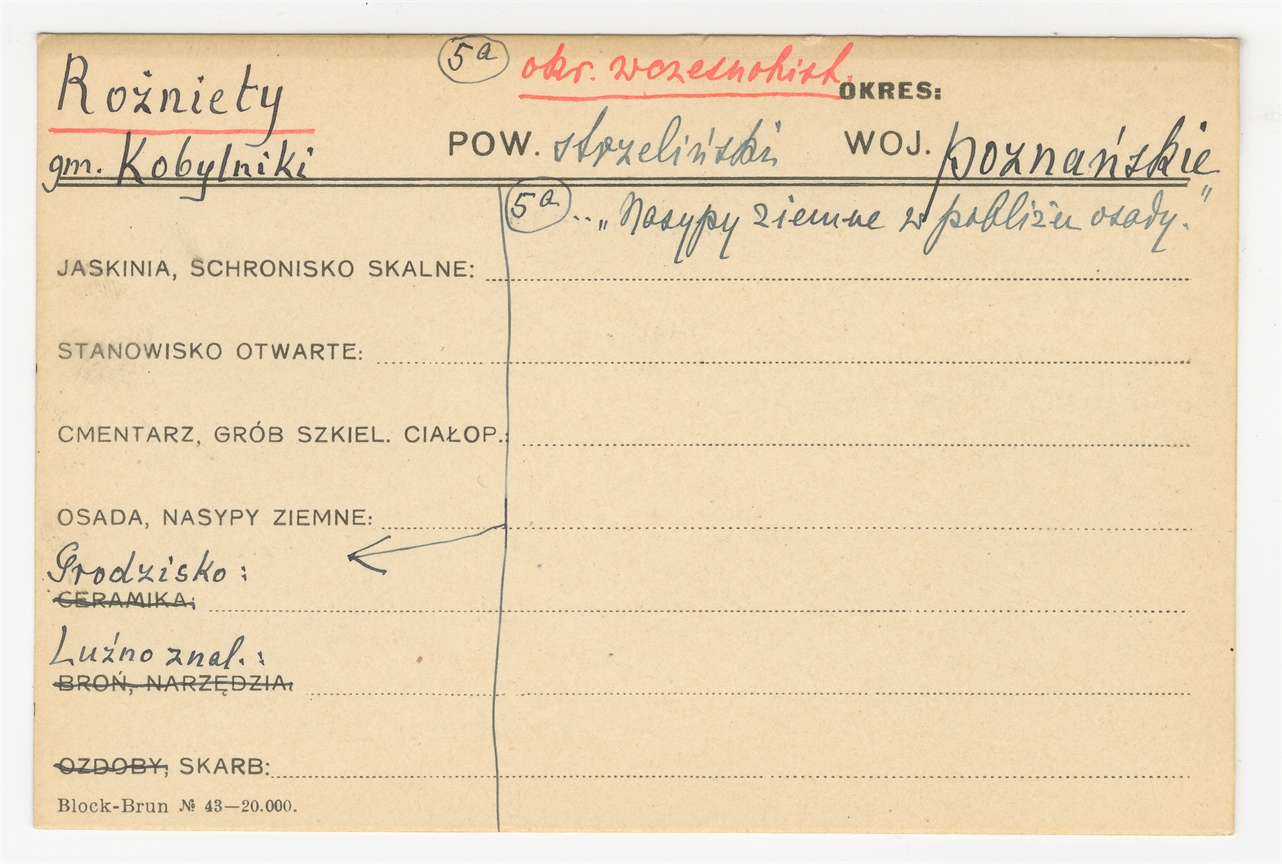 Rożniety
5a okr. wczesnohist. OKRES:
gm. Kobylniki POW. strzeliński WOJ. poznańskie
5a .. „Nasypy ziemne w pobliżu osady.”
JASKINIA, SCHRONISKO SKALNE:
STANOWISKO OTWARTE:
CMENTARZ, GRÓB SZKIEL. CIAŁOP.:
OSADA, NASYPY ZIEMNE:
Grodzisko:
CERAMIKA:
Luźno znal.:
BROŃ, NARZĘDZIA:
OZDOBY, SKARB:
Block-Brun № 43—20.000.